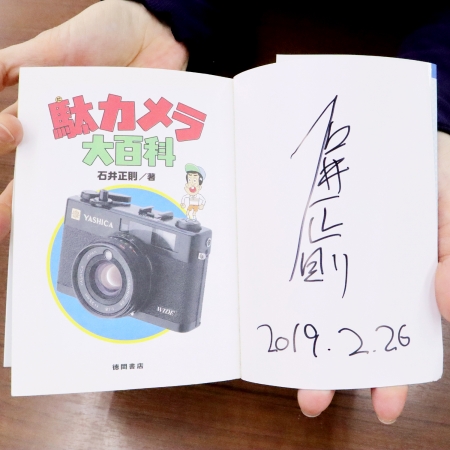 駄カメラ
大百科
石井正則／著
YASHICA
WIDE
徳間書店
石井正則
2019.2.26